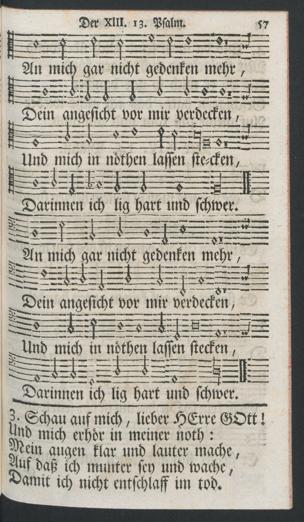 Der XIII. 13. Psalm. 57
An mich gar nicht gedenken mehr,
Dein angesicht vor mir verdecken,
Und mich in nöthen lassen stecken,
Darinnen ich lig hart und schwer.
An mich gar nicht gedenken mehr,
Dein angesicht vor mir verdecken,
Und mich in nöthen lassen stecken,
Darinnen ich lig hart und schwer.
3. Schau auf mich, lieber HErre GOtt!
Und mich erhör in meiner noth:
Mein augen klar und lauter mache,
Auf daß ich munter sey und wache,
Damit ich nicht entschlaff im tod.